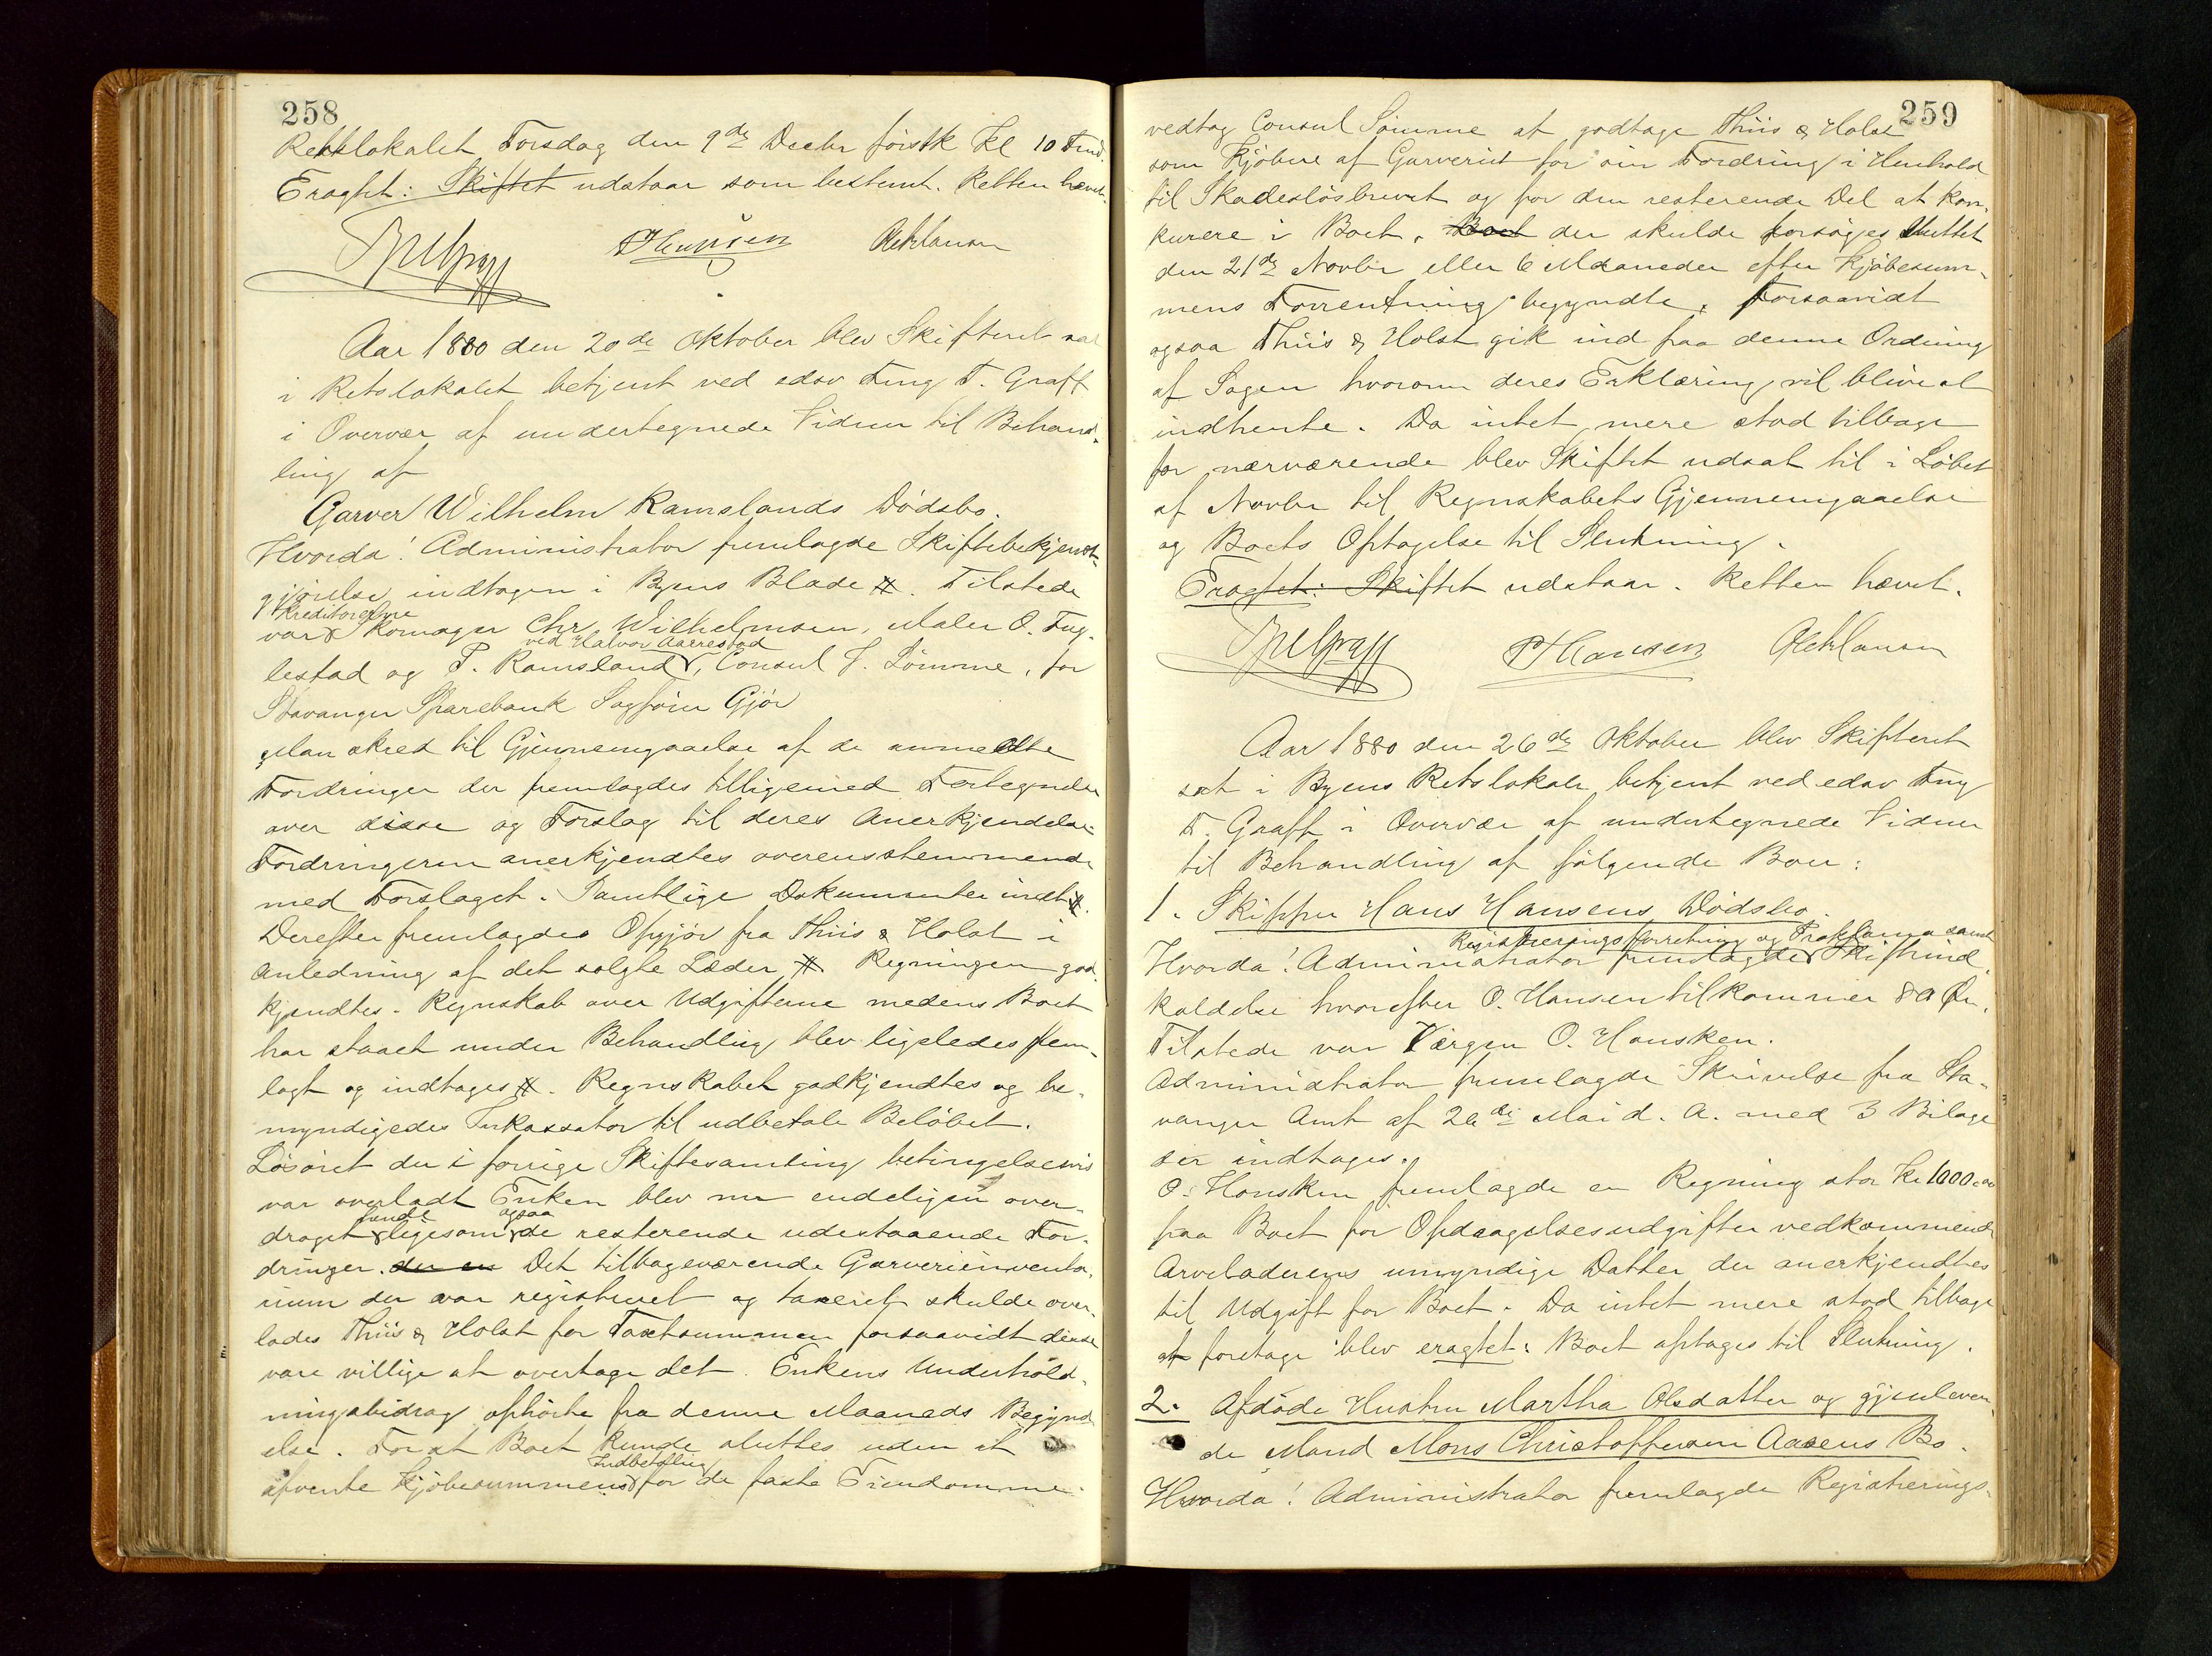 258
Retslokalet Torsdag den 9de Decbr förstk Kl 10 Fmd.
Eragtet: Skiftet udstaar som bestemt. Retten hævet.
PHansen
Aar 1880 den 20de Oktober blev Skifteret sat
i Retslokalet betjent ved edsv Fmg F. Graff
i Overvær af undertegnede Vidner til Behand-
ling af
Garver Wilhelm Ramslands Dödsbo.
Hvorda! Administrator fremlagde Skiftebekjendt-
gjörelse indtagen i Byens Blade #. Tilstede
Kreditorerne
var Skomager Chr. Wilhelmsen, Maler O. Fug-
ved Halvor Aarrestad
lestad og P. Ramsland, Consul J. Sömme, for
Stavanger Sparebank Sagförer Gjör
Man skred til Gjennemgaaelse af de anmeldte
Fordringer der fremlagdes tilligemed Fortegnelse
over disse og Forslag til deres Anerkjendelse.
Fordringerne anerkjendtes overensstemmende
med Forslaget. Samtlige Dokumenter indt #.
Derefter fremlagdes Opgjör fra Thiis & Holst i
Anledning af det solgte Læder, #. Regningen god-
kjendtes. Regnskab over Udgifterne medens Boet
har staaet under Behandling blev ligeledes frem-
lagt og indtages #. Regnskabet godkjendtes og be-
myndigedes Inkassator til udbetale Belöbet.
Lösöret der i forrige Skiftesamling betingelsesvis
var overladt Enken blev nu endeligen over-
hende ogsaa
draget ligesom de resterende udestaaende For-
dringer. der en Det tilbageværende Garveriinventa-
rium der var registreret og taxeret skulde over-
lades Thiis & Holst for Taxtsummen forsaavidt disse
vare villige at overtage det. Enkens Underhold-
ningsbidrag ophörte fra denne Maaneds Begynd-
else. For at Boet kunde sluttes uden at
Indbetaling
afvente Kjöbesummens for de faste Eiendomme
259
vedtog Consul Sömme at godtage Thiis & Holst
som Kjöbere af Garveriet for sin Fordring i Henhold
til Skadeslösbrevet og for den resterende Del at kon-
kurere i Boet. Boet der skulde forsöges sluttet
den 21de Novbr eller 6 Maaneder efter Kjöbesum-
mens Forrentning begyndte, forsaavidt
ogsaa Thiis & Holst gik ind paa denne Ordning
af Sagen hvorom deres Erklæring vil blive at
indhente. Da intet mere stod tilbage
for nærværende blev Skiftet udsat til i Löbet
af Novbr til Regnskabets Gjennemgaaelse
og Boets Optagelse til Slutning.
Eragtet: Skiftet udstaar. Retten hævet.
PHansen
Aar 1880 den 26de Oktober blev Skifteret
sat i Byens Retslokale betjent ved edsv Fmg
F. Graff i Overvær af undertegnede Vidner
til Behandling af fölgende Boer:
1. Skipper Hans Hansens Dödsbo.
Registreringsforretning og Proklama samt
Hvorda! Administrator fremlagde Skifteind-
kaldelse hvorefter O. Hansen tilkommer 80 Ör.
Tilstede var Værgen O. Hausken.
Administrator fremlagde Skrivelse fra Sta-
vanger Amt af 26de Mai d. A. med 3 Bilage
der indtages.
O. Hausken fremlagde en Regning stor Kr 1000.00
paa Boet för Opdragelsesudgifter vedkommende
Arveladerens umyndige Datter der anerkjendtes
til Udgift for Boet. Da intet mere stod tilbage
at foretage blev eragtet: Boet optages til Slutning.
2. Afdöde Hustru Martha Olsdatter og gjenleven-
de Mand Mons Christoffersen Aasens Bo.
Hvorda! Administrator fremlagde Registrerings-